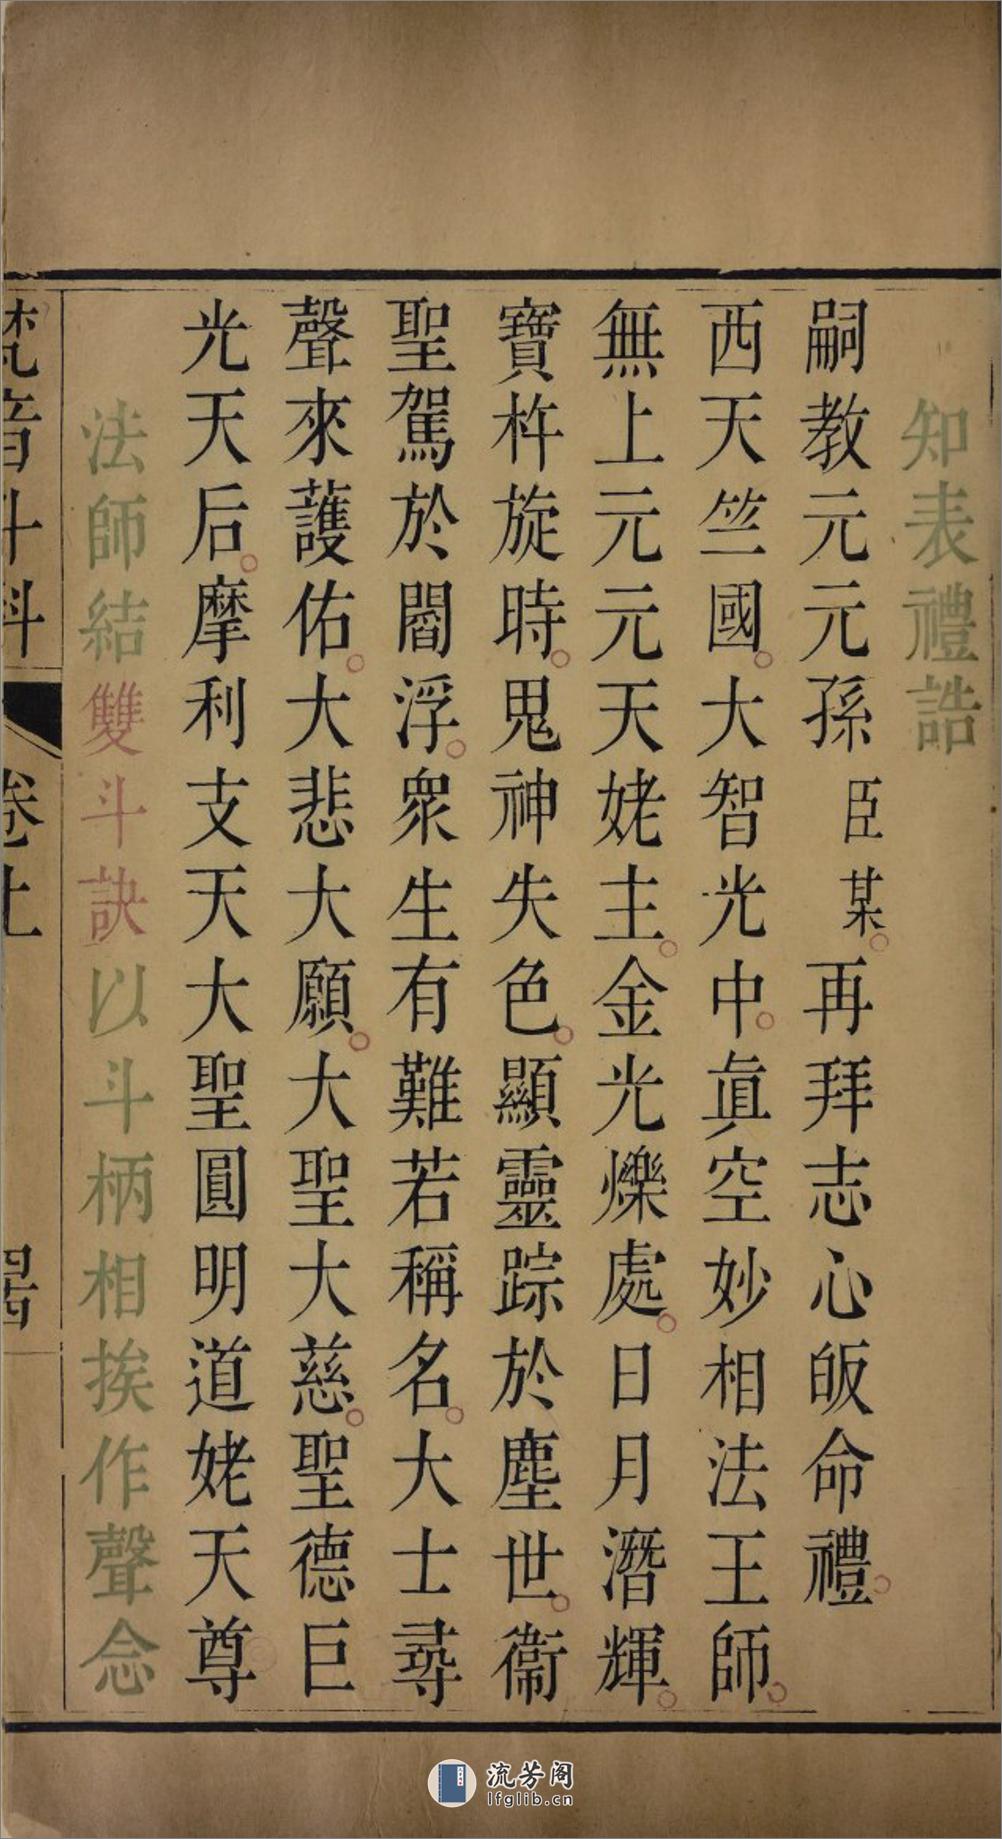 知表禮誥
嗣教元元孫臣某。再拜志心皈命禮。
西天竺國。大智光中。眞空妙相法王師。
無上元元天姥主。金光爍處。日月潛輝。
寶杵旋時。鬼神失色。顯靈踪於塵世。衞
聖駕於閻浮。衆生有難若稱名。大士尋
聲來護佑。大悲大願。大聖大慈。聖德巨
光天后。摩利支天大聖圓明道姥天尊
法師結雙斗訣以斗柄相挨作聲念
梵音斗科
卷上
流芳阁
lfglib.cn